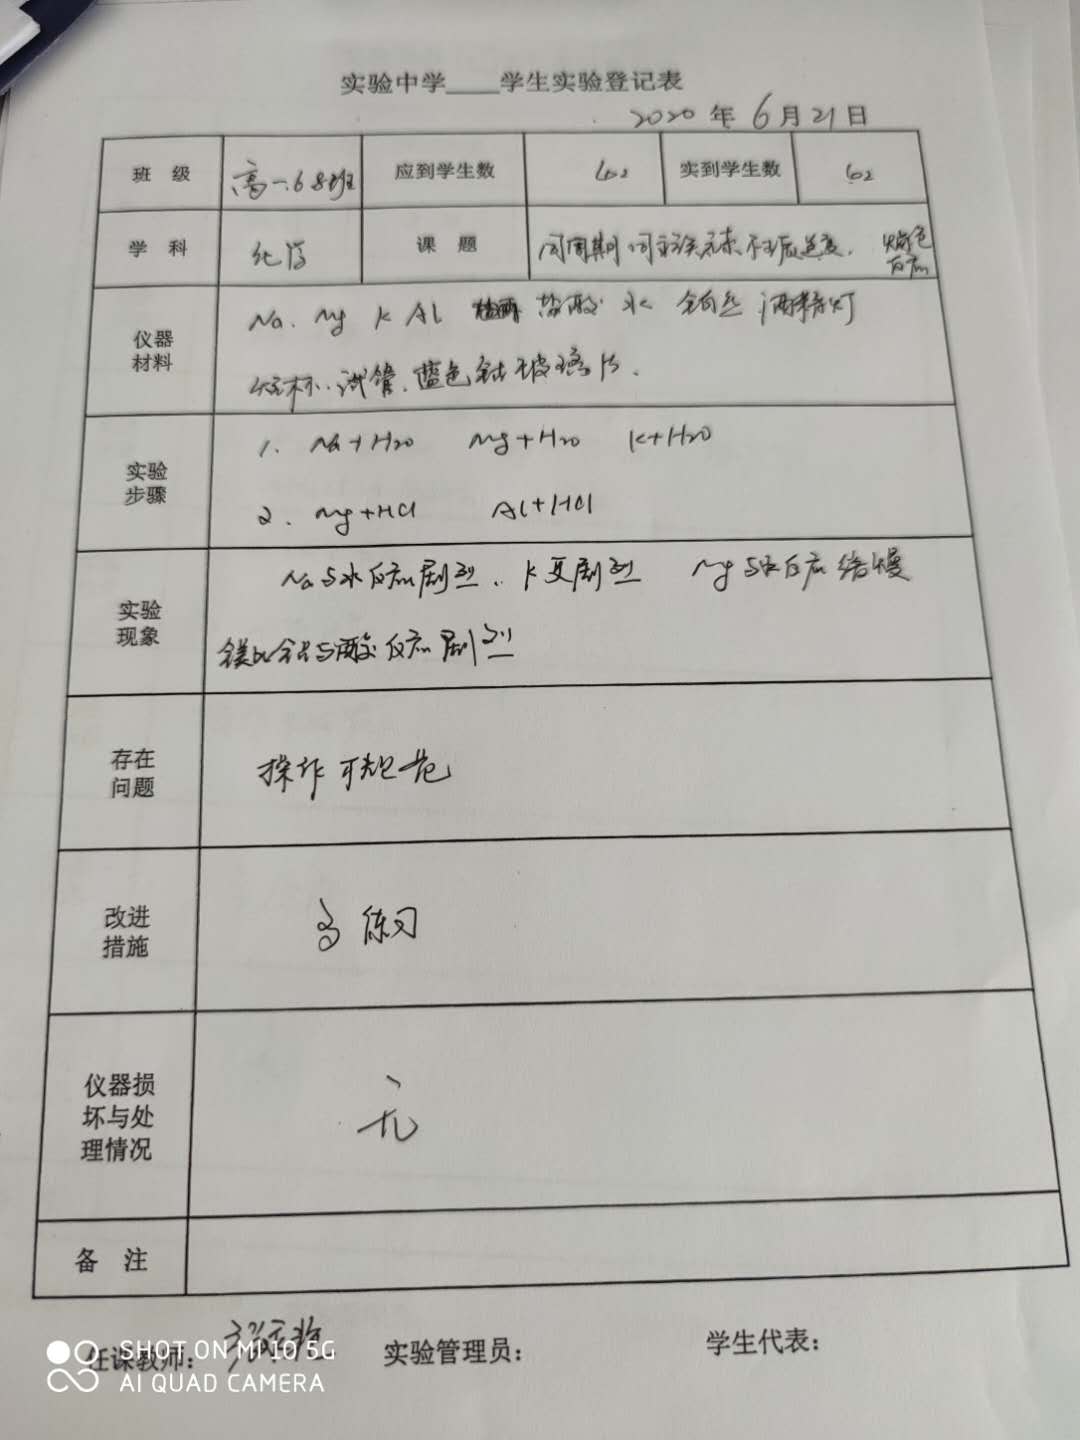 实验中学____学生实验登记表
2020年6月21日
班级 高一.68班 应到学生数 62 实到学生数 62
学科 化学 课题 同周期同主族元素 反应 焰色
反应
仪器
材料
Na. Mg K Al 盐酸 水 铂丝 酒精灯
烧杯. 试管. 蓝色钴玻璃片.
实验
步骤
1. Na+H2O Mg+H2O K+H2O
2. Mg+HCl Al+HCl
实验
现象
Na与水反应剧烈. K更剧烈 Mg与水反应缓慢
镁比铝与酸反应剧烈
存在
问题
操作 规范
改进
措施
多练习
仪器损
坏与处
理情况
无
备注
任课教师: 实验管理员: 学生代表:
SHOT ON MI 10 5G
AI QUAD CAMERA